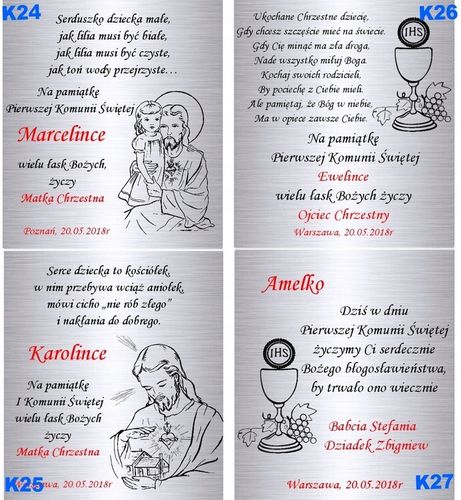 K24
Serduszko dziecka małe,
jak lilia musi być białe,
jak lilia musi być czyste,
jak toń wody przejrzyste...
Na pamiątkę
Pierwszej Komunii Świętej
Marcelince
wielu łask Bożych,
życzy
Matka Chrzestna
Poznań, 20.05.2018r
K26
Ukochane Chrzestne dziecię,
Gdy chcesz szczęście mieć na świecie.
Gdy Cię minąć ma zła droga,
Nade wszystko miłuj Boga.
Kochaj swoich rodzicieli,
By pociechę z Ciebie mieli.
Ale pamiętaj, że Bóg w niebie,
Ma w opiece zawsze Ciebie.
IHS
Na pamiątkę
Pierwszej Komunii Świętej
Ewelince
wielu łask Bożych życzy
Ojciec Chrzestny
Warszawa, 20.05.2018r
Serce dziecka to kościółek,
w nim przebywa wciąż aniołek,
mówi cicho „nie rób złego”
i nakłania do dobrego.
Karolince
Na pamiątkę
I Komunii Świętej
wielu łask Bożych
życzy
Matka Chrzestna
K25
Warszawa, 20.05.2018r
Amelko
Dziś w dniu
Pierwszej Komunii Świętej
życzymy Ci serdecznie
Bożego błogosławieństwa,
by trwało ono wiecznie
IHS
Babcia Stefania
Dziadek Zbigniew
Warszawa, 20.05.2018r
K27